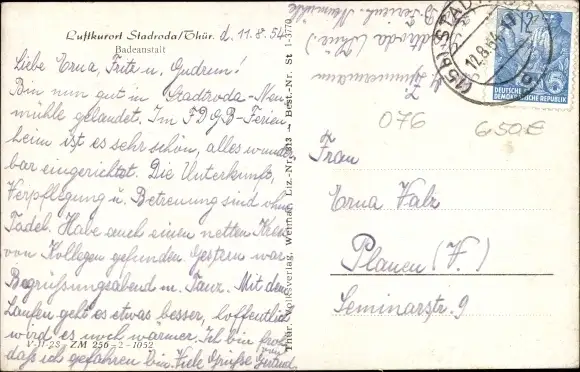 Luftkurort Stadroda/Thür. d. 11.8.54
Badeanstalt
Liebe Erna, Fritz u. Gudrun!
Bin nun gut in Stadtroda-Neu-
mühle gelandet. Im FDGB-Ferien-
heim ist es sehr schön, alles wunder-
bar eingerichtet. Die Unterkunft,
Verpflegung u. Betreuung sind ohne
Tadel. Habe auch einen netten Kreis
von Kollegen gefunden. Gestern war
Begrüßungsabend m. Tanz. Mit dem
Laufen geht es etwas besser, hoffentlich
wird es noch wärmer. Ich bin froh
daß ich gefahren bin. Viele Grüße
von Gertrud
V-11-28 ZM 256-2-1052
Thür. Volksverlag, Weimar, Liz.-Nr. Best.-Nr. St 1-3770
Stadtroda (Thür.)
FDGB-Ferienh. Neumühle
(15b) STADTRODA
12.8.54
DEUTSCHE
DEMOKRATISCHE REPUBLIK
076
6,50€
Frau
Erna Valz
Plauen (V.)
Seminarstr. 9